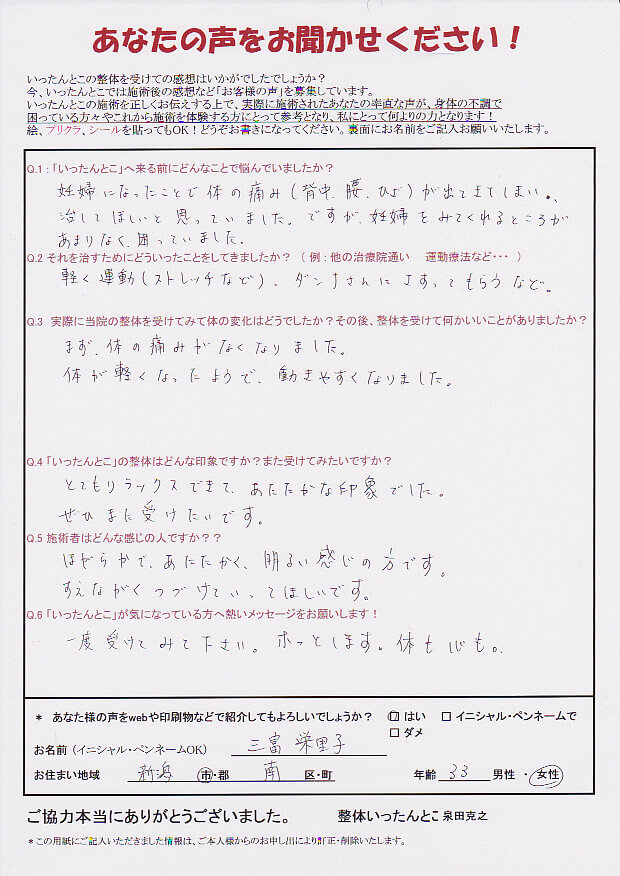 あなたの声をお聞かせください！
いったんとこの整体を受けての感想はいかがでしたでしょうか？
今、いったんとこでは施術後の感想など「お客様の声」を募集しています。
いったんとこの施術を正しくお伝えする上で、実際に施術されたあなたの率直な声が、身体の不調で
困っている方々やこれから施術を体験する方にとって参考となり、私にとって何よりの力となります！
絵、プリクラ、シールを貼ってもOK！どうぞお書きになってください。裏面にお名前をご記入お願いいたします。
Q.1：「いったんとこ」へ来る前にどんなことで悩んでいましたか？
妊婦になったことで体の痛み（背中、腰、ひざ）が出てきてしまい、
治してほしいと思っていました。ですが、妊婦をみてくれるところが
あまりなく、困っていました。
Q.2 それを治すためにどういったことをしてきましたか？（例：他の治療院通い　運動療法など・・・）
軽く運動（ストレッチなど）、ダンナさんにさすってもらうなど。
Q.3 実際に当院の整体を受けてみて体の変化はどうでしたか？その後、整体を受けて何かいいことがありましたか？
まず、体の痛みがなくなりました。
体が軽くなったようで、動きやすくなりました。
Q.4 「いったんとこ」の整体はどんな印象ですか？また受けてみたいですか？
とてもリラックスできて、あたたかな印象でした。
ぜひまた受けたいです。
Q.5 施術者はどんな感じの人ですか？？
ほがらかで、あたたかく、明るい感じの方です。
すえながくつづけていってほしいです。
Q.6 「いったんとこ」が気になっている方へ熱いメッセージをお願いします！
一度受けてみて下さい。ホッとします。体も心も。
＊ あなた様の声をwebや印刷物などで紹介してもよろしいでしょうか？ □ はい □ イニシャル・ペンネームで
□ ダメ
お名前（イニシャル・ペンネームOK） 三富 栄里子
お住まい地域 新潟 市・郡 南 区・町 年齢 33 男性 ・ 女性
ご協力本当にありがとうございました。 整体いったんとこ 泉田克之
＊この用紙にご記入いただきました情報は、ご本人様からのお申し出により訂正・削除いたします。